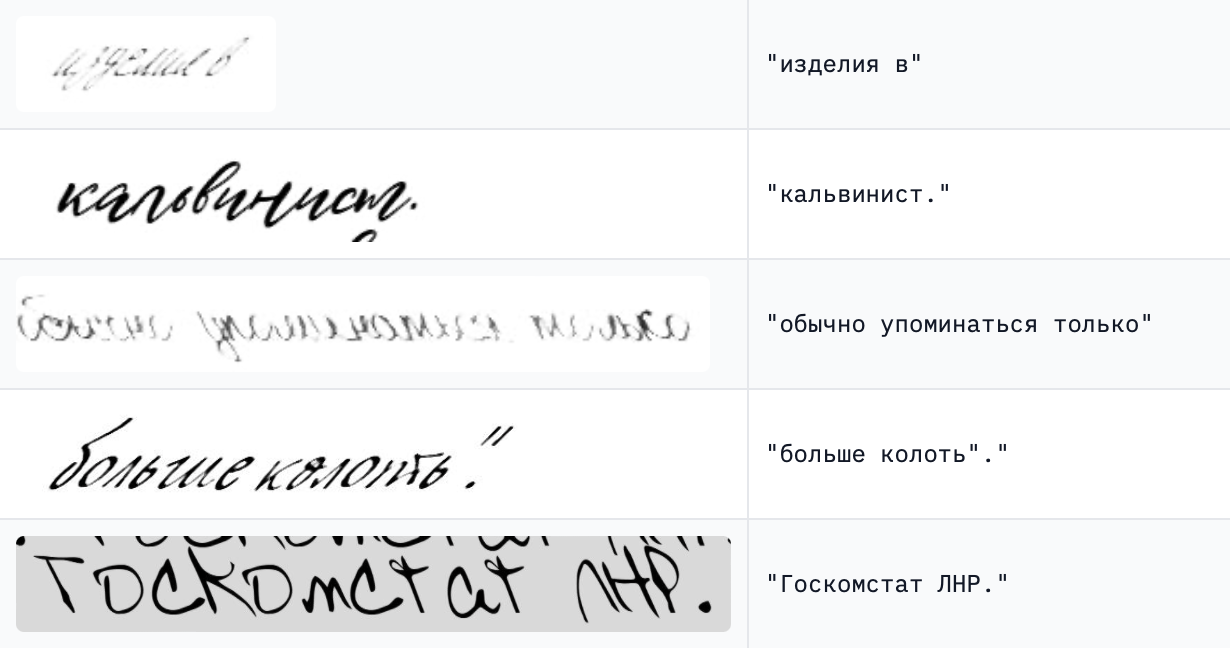 изделия в "изделия в"
кальвинист. "кальвинист."
обычно упоминаться только "обычно упоминаться только"
больше колоть". "больше колоть"."
Госкомстат ЛНР. "Госкомстат ЛНР."